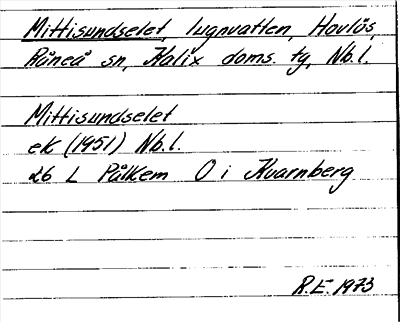 Mittisundselet, lugnvatten, Hovlös,
Råneå sn, Kalix doms. tg, Nb.l.
Mittisundselet
ek (1951) Nb.l.
26 L Pålkem O i Kvarnberg
R.E. 1973